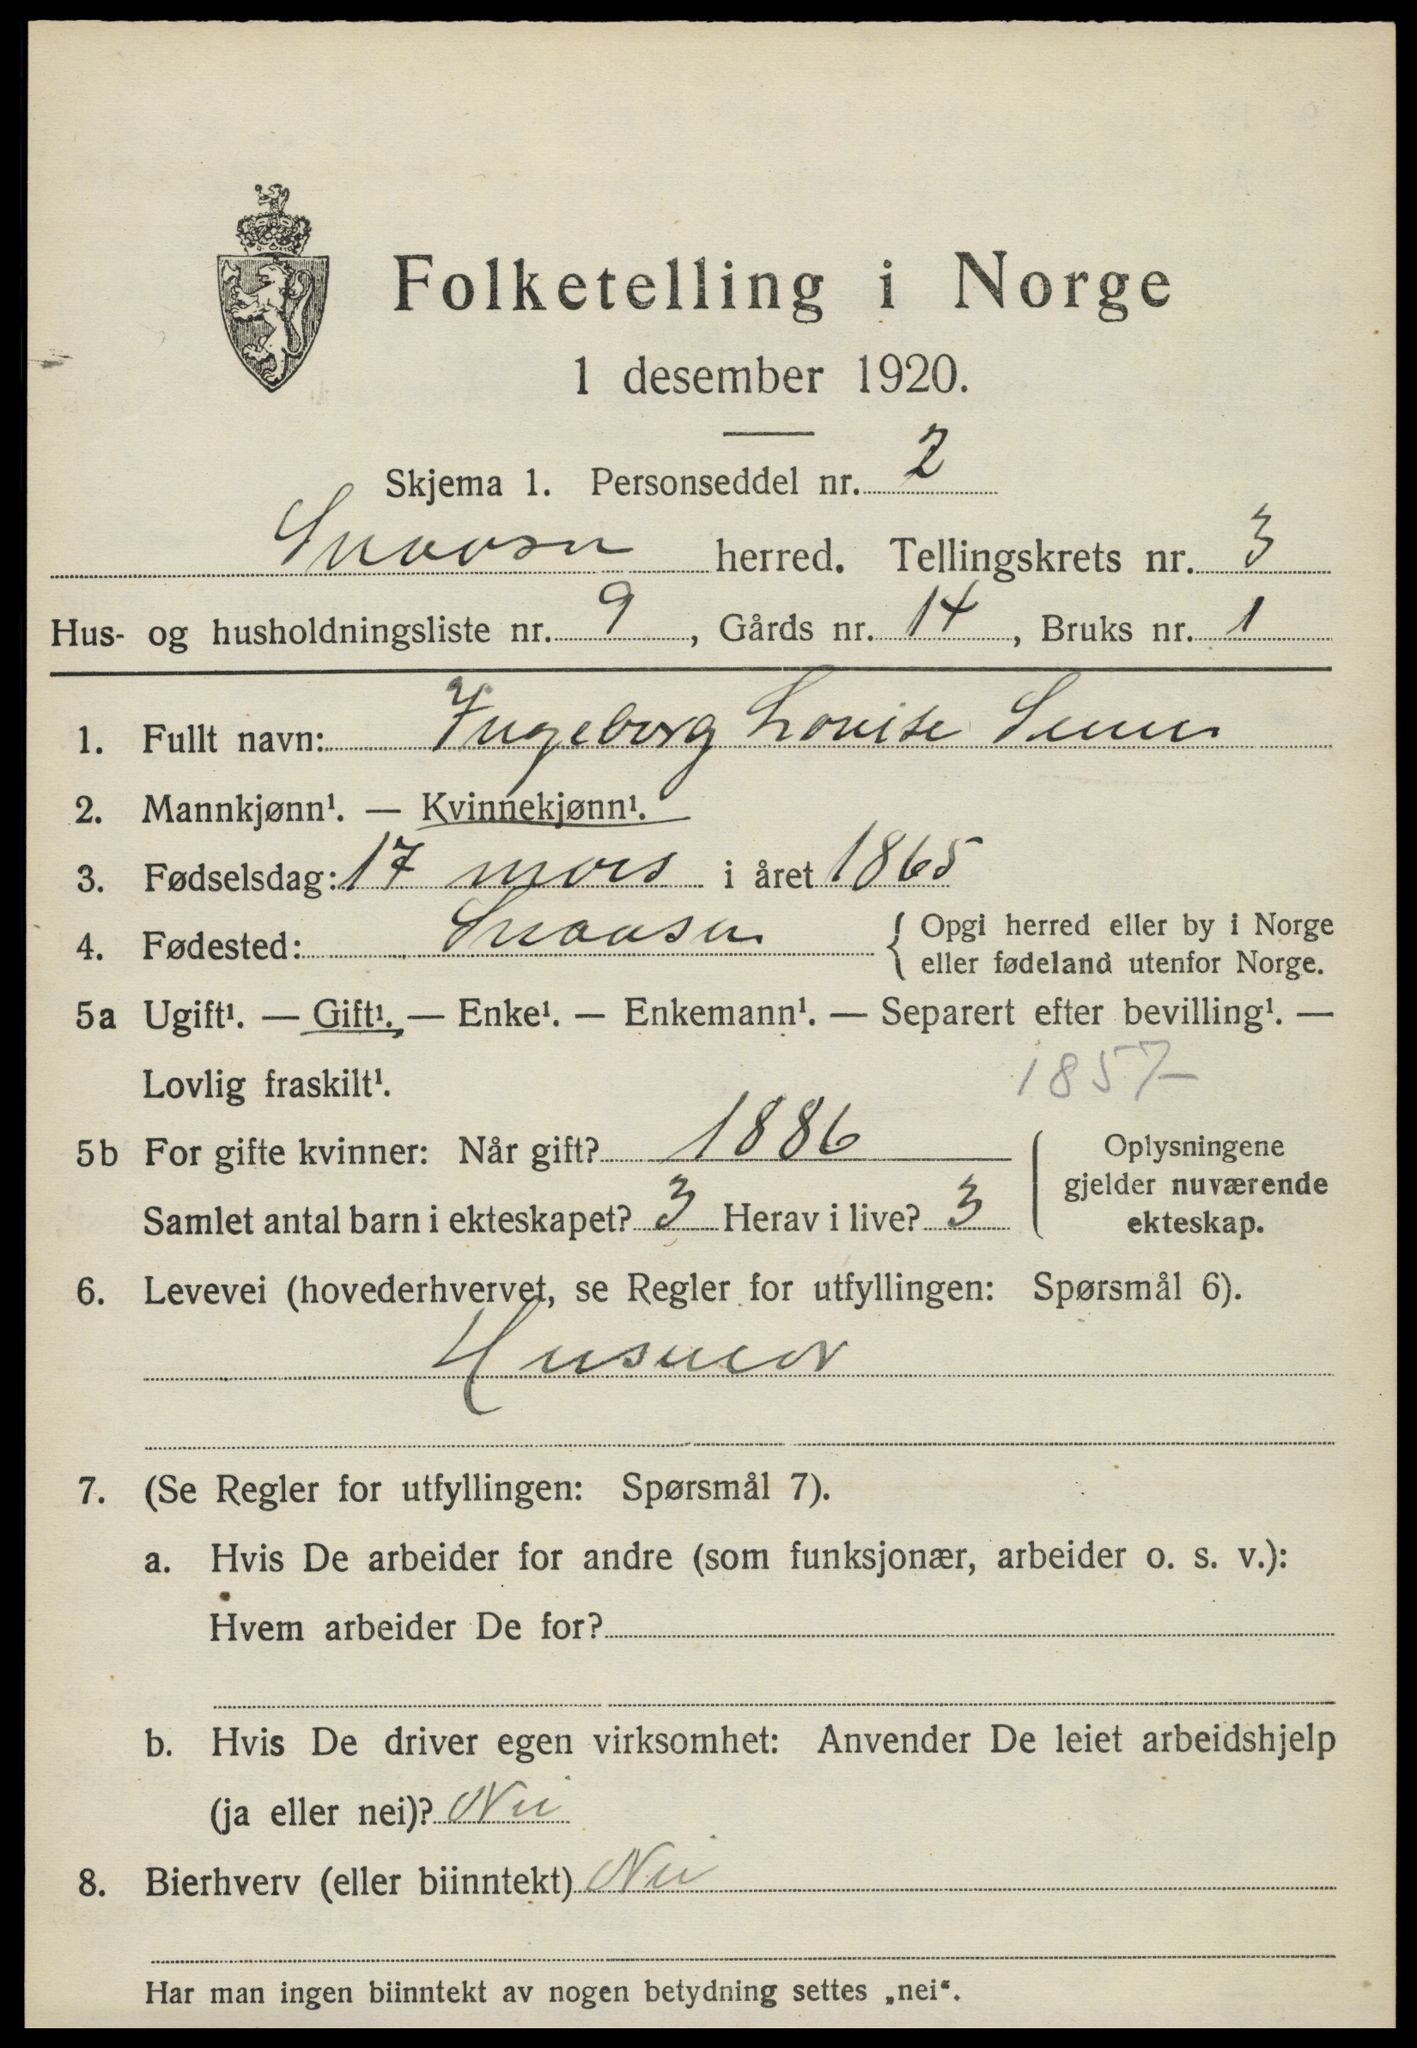 Folketelling i Norge
1 desember 1920.
Skjema 1. Personseddel nr. 2
Snaasen herred. Tellingskrets nr. 3
Hus- og husholdningsliste nr. 9, Gårds nr. 14, Bruks nr. 1
1. Fullt navn: Ingeborg Lovise
2. Mannkjønn¹. — Kvinnekjønn¹.
3. Fødselsdag: 17 mars i året 1865
4. Fødested: Snaasen { Opgi herred eller by i Norge
eller fødeland utenfor Norge.
5a Ugift¹. — Gift¹. — Enke¹. — Enkemann¹. — Separert efter bevilling¹. —
Lovlig fraskilt¹. 1857
5b For gifte kvinner: Når gift? 1886
Samlet antal barn i ekteskapet? 3 Herav i live? 3
Oplysningene
gjelder nuværende
ekteskap.
6. Levevei (hovederhvervet, se Regler for utfyllingen: Spørsmål 6).
Husmor
7. (Se Regler for utfyllingen: Spørsmål 7).
a. Hvis De arbeider for andre (som funksjonær, arbeider o. s. v.):
Hvem arbeider De for?
b. Hvis De driver egen virksomhet: Anvender De leiet arbeidshjelp
(ja eller nei)? Nei
8. Bierhverv (eller biinntekt) Nei
Har man ingen biinntekt av nogen betydning settes „nei“.